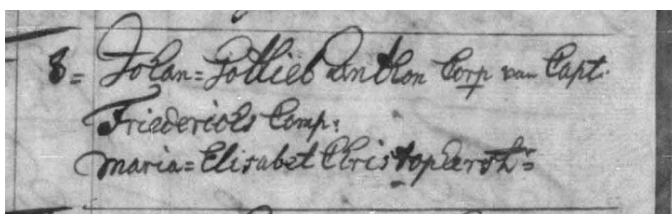 8= Johan=Gottlieb Anthon Corp van Capt.
Friederichs Comp:
Maria=Elisabet Christophers Tr=